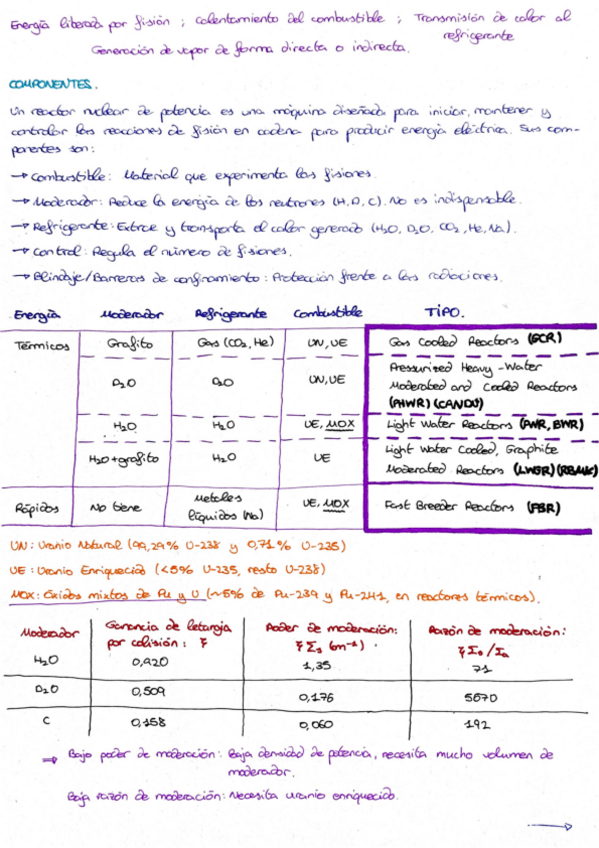 Energía liberada por fisión ; Calentamiento del combustible ; Transmisión de calor al
refrigerante
Generación de vapor de forma directa o indirecta.
COMPONENTES.
Un reactor nuclear de potencia es una máquina diseñada para iniciar, mantener y
controlar las reacciones de fisión en cadena para producir energía eléctrica. Sus com-
ponentes son:
→ Combustible: Material que experimenta las fisiones.
→ Moderador: Reduce la energía de los neutrones (H, D, C). No es indispensable.
→ Refrigerante: Extrae y transporta el calor generado (H₂O, D₂O, CO₂, He, Na).
→ Control: Regula el número de fisiones.
→ Blindaje/Barreras de confinamiento: Protección frente a las radiaciones.
Energía Moderador Refrigerante Combustible TIPO.
Térmicos Grafito Gas (CO₂, He) UN, UE Gas Cooled Reactors (GCR)
D₂O D₂O UN, UE Pressurized Heavy-Water
Moderated and Cooled Reactors
(PHWR) (CANDU)
H₂O H₂O UE, MOX Light Water Reactors (PWR, BWR)
H₂O+grafito H₂O UE Light Water Cooled, Graphite
Moderated Reactors (LWGR) (RBMK)
Rápidos No tiene Metales
líquidos (Na) UE, MOX Fast Breeder Reactors (FBR)
UN: Uranio Natural (99,29% U-238 y 0,71% U-235)
UE: Uranio Enriquecido (<5% U-235, resto U-238)
MOX: Óxidos mixtos de Pu y U (~5% de Pu-239 y Pu-241, en reactores térmicos).
Moderador Ganancia de letargia
por colisión: ξ Poder de moderación:
ξ Σs (cm⁻¹) Razón de moderación:
ξ Σs/Σa
H₂O 0,920 1,35 71
D₂O 0,509 0,176 5670
C 0,158 0,060 192
⇒ Bajo poder de moderación: Baja densidad de potencia, necesita mucho volumen de
moderador.
Baja razón de moderación: Necesita uranio enriquecido.
→